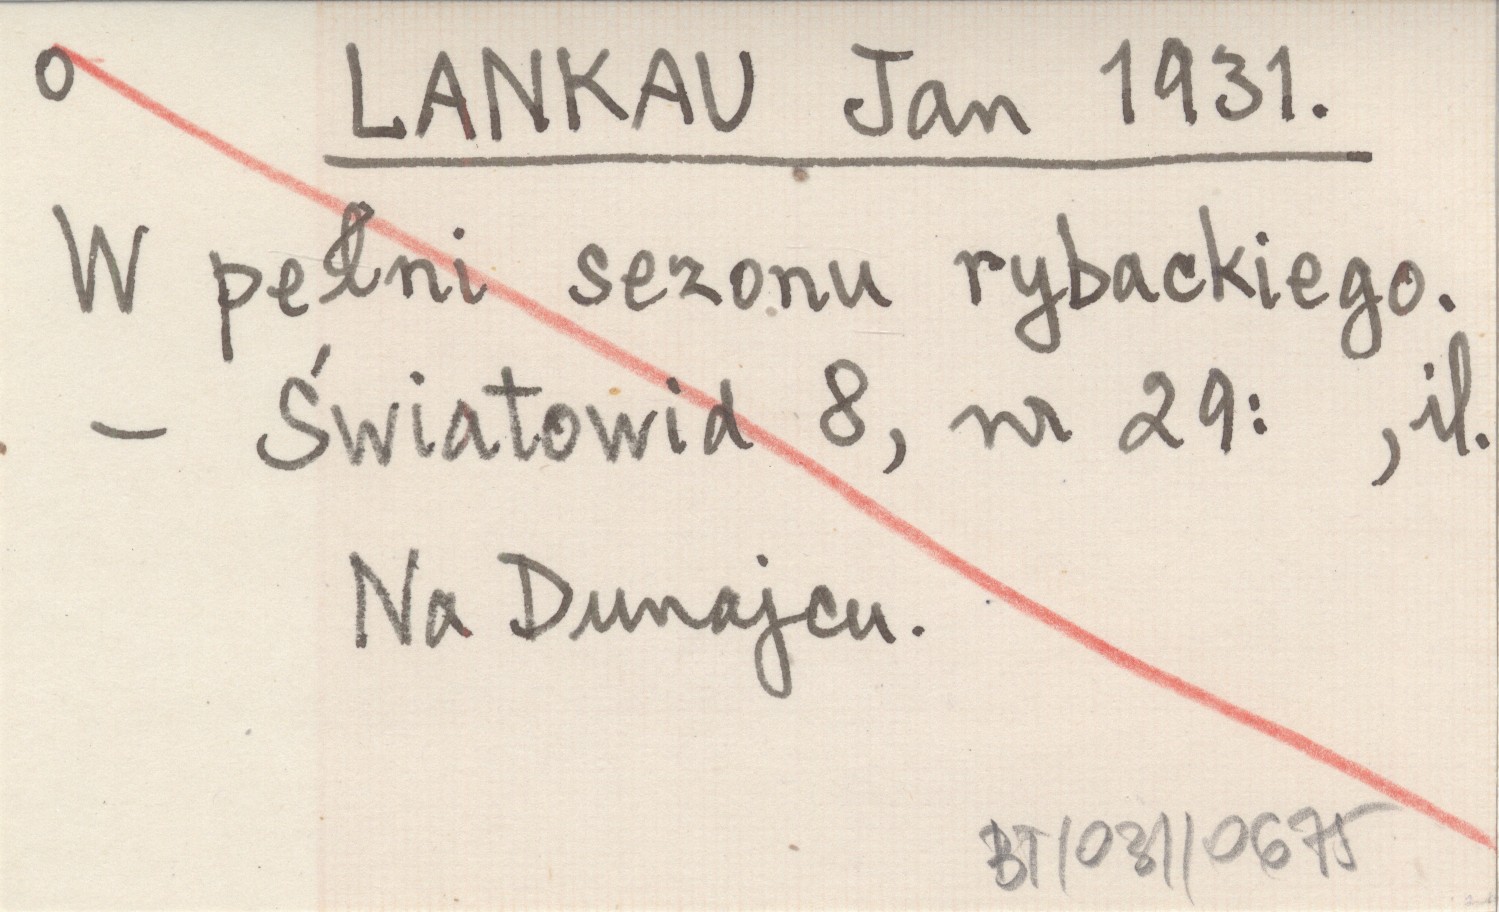 o LANKAU Jan 1931.
W pełni sezonu rybackiego.
– Światowid 8, nr 29: , il.
Na Dunajcu.
BT/031/0675